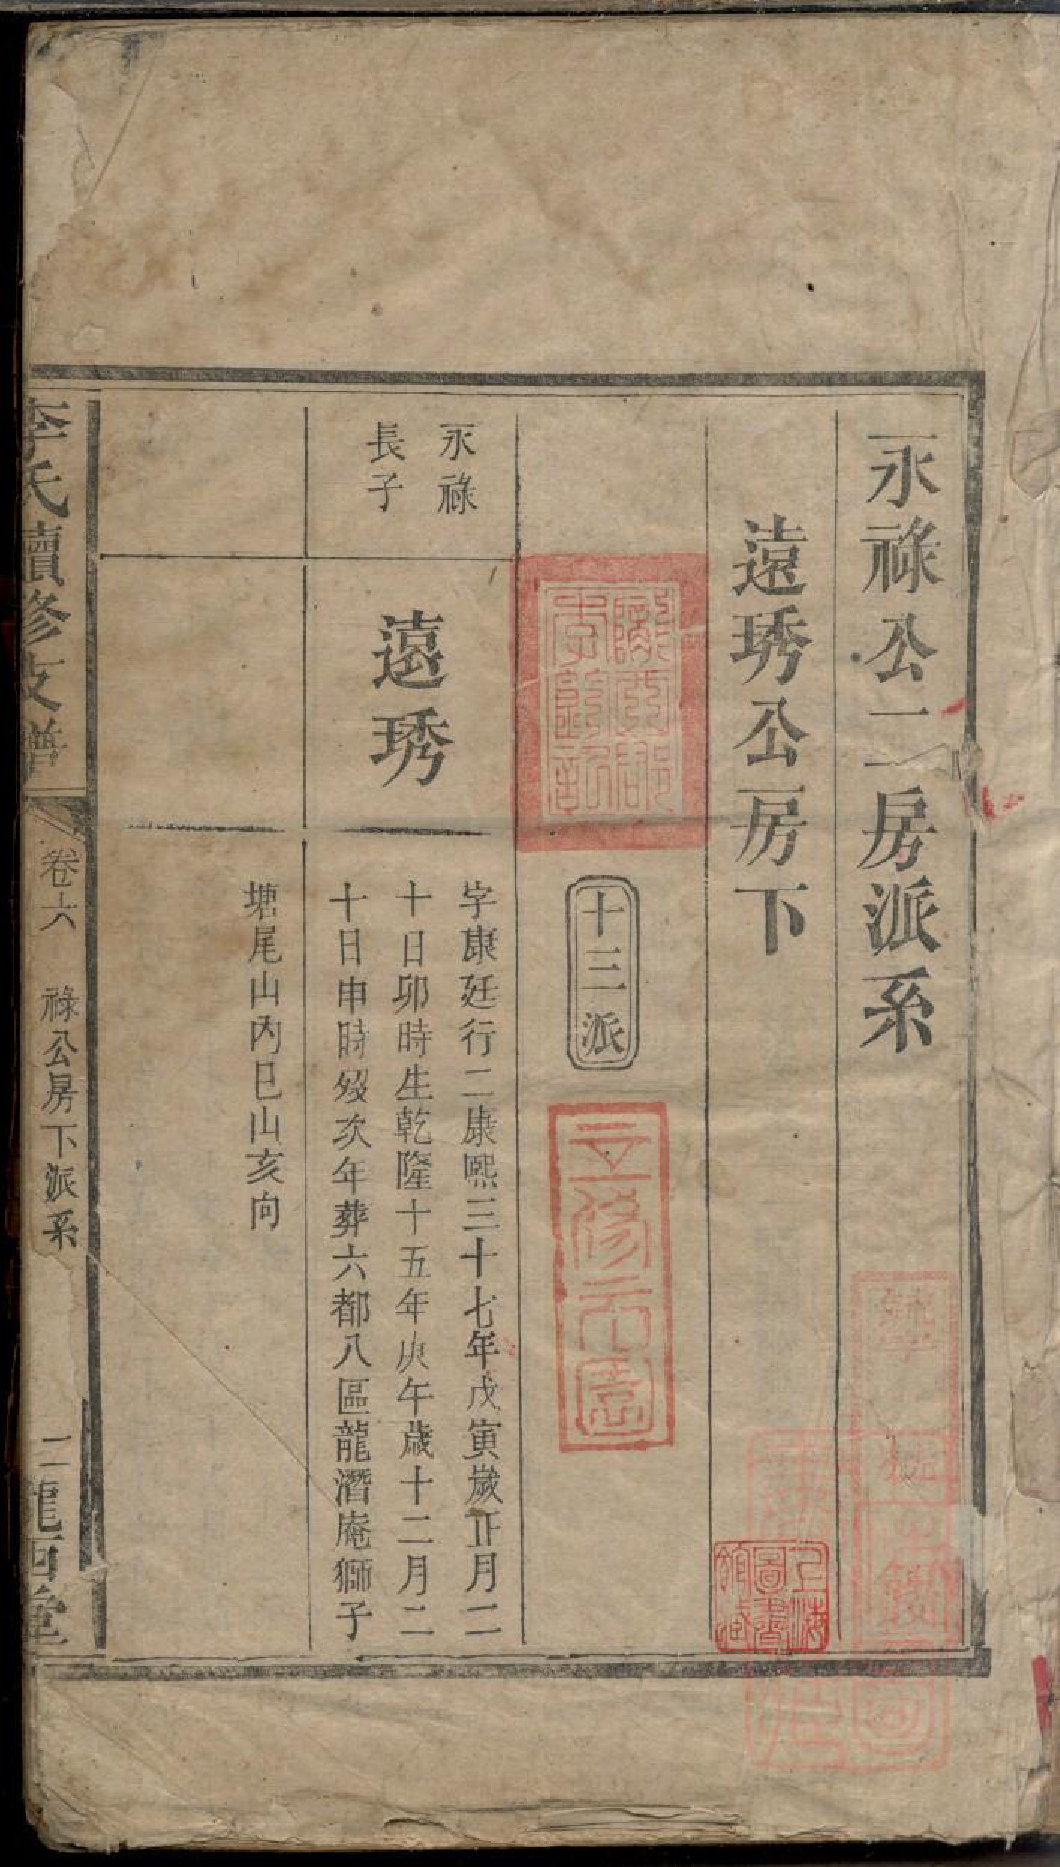 永祿公二房派系
遠琇公房下
十三派
永祿
長子
遠琇
字康廷行二康熙三十七年戊寅歲正月二
十日卯時生乾隆十五年庚午歲十二月二
十日申時歿次年葬六都八區龍潛庵獅子
塘尾山內巳山亥向
李氏續修支譜
卷六
祿公房下派系
二
龍西堂
隴西郡
李氏
上海
圖書
館藏